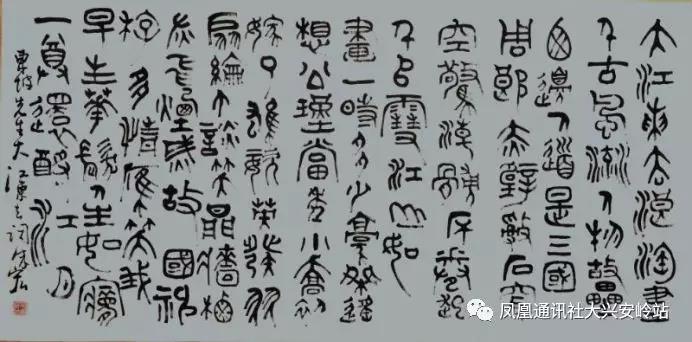 大江東去浪淘盡
千古風流人物故壘
西邊人道是三國
周郎赤壁石穿
空驚濤岸捲起
千堆雪江山如
畫一時多少豪傑遙
想公瑾當年小喬初
嫁了雄姿英發羽
扇綸巾談笑間檣櫓
灰飛煙滅故國神
游多情應笑我
早生華髮人生如夢
一尊還酹江月
東坡先生大江東去詞
凤凰通讯社大兴安岭站